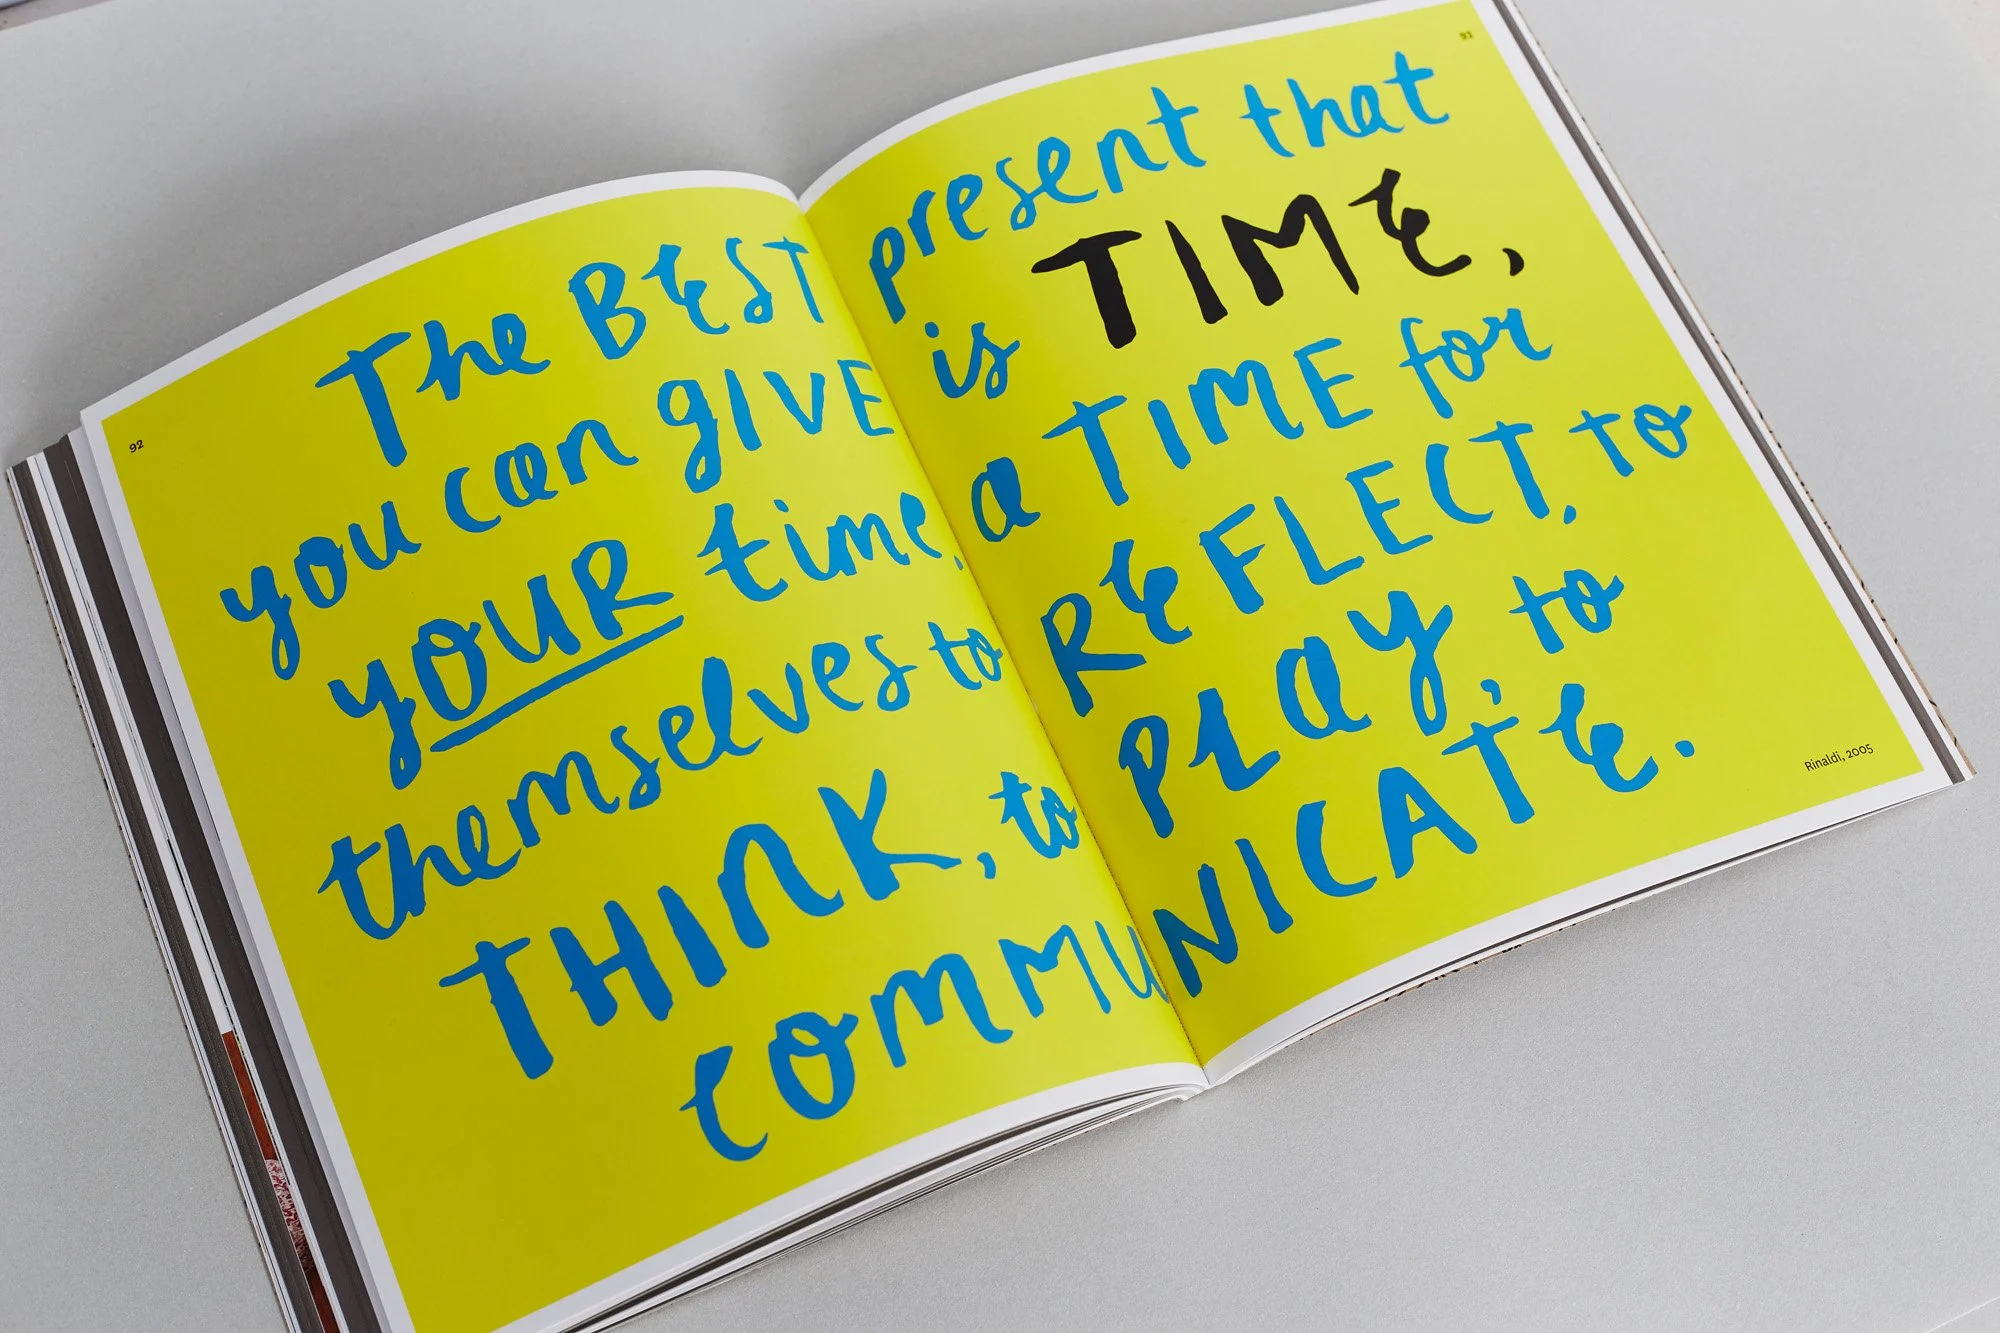 92
93
The BEST present that
you can gIVE is TIME,
yOUR time, a TIME for
themselves to REFLECT, to
THINK, to PLAY, to
COMMUNICATE.
Rinaldi, 2005